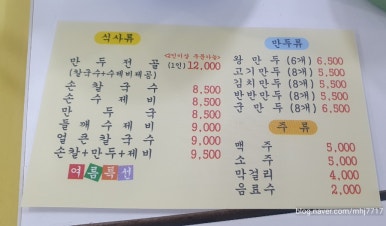 식사류
<2인이상 주문가능>
만두전골 (1인) 12,000
(칼국수+수제비제공)
손칼국수 8,500
손수제비 8,500
만두국 8,500
들깨수제비 9,000
얼큰칼국수 9,000
손칼+만두+제비 9,500
여름특선
만두류
왕만두 (6개) 6,500
고기만두 (8개) 5,500
김치만두 (8개) 5,500
반반만두 (8개) 5,500
군만두 (8개) 6,500
주류
맥주 5,000
소주 5,000
막걸리 4,000
음료수 2,000
blog.naver.com/mhj7717